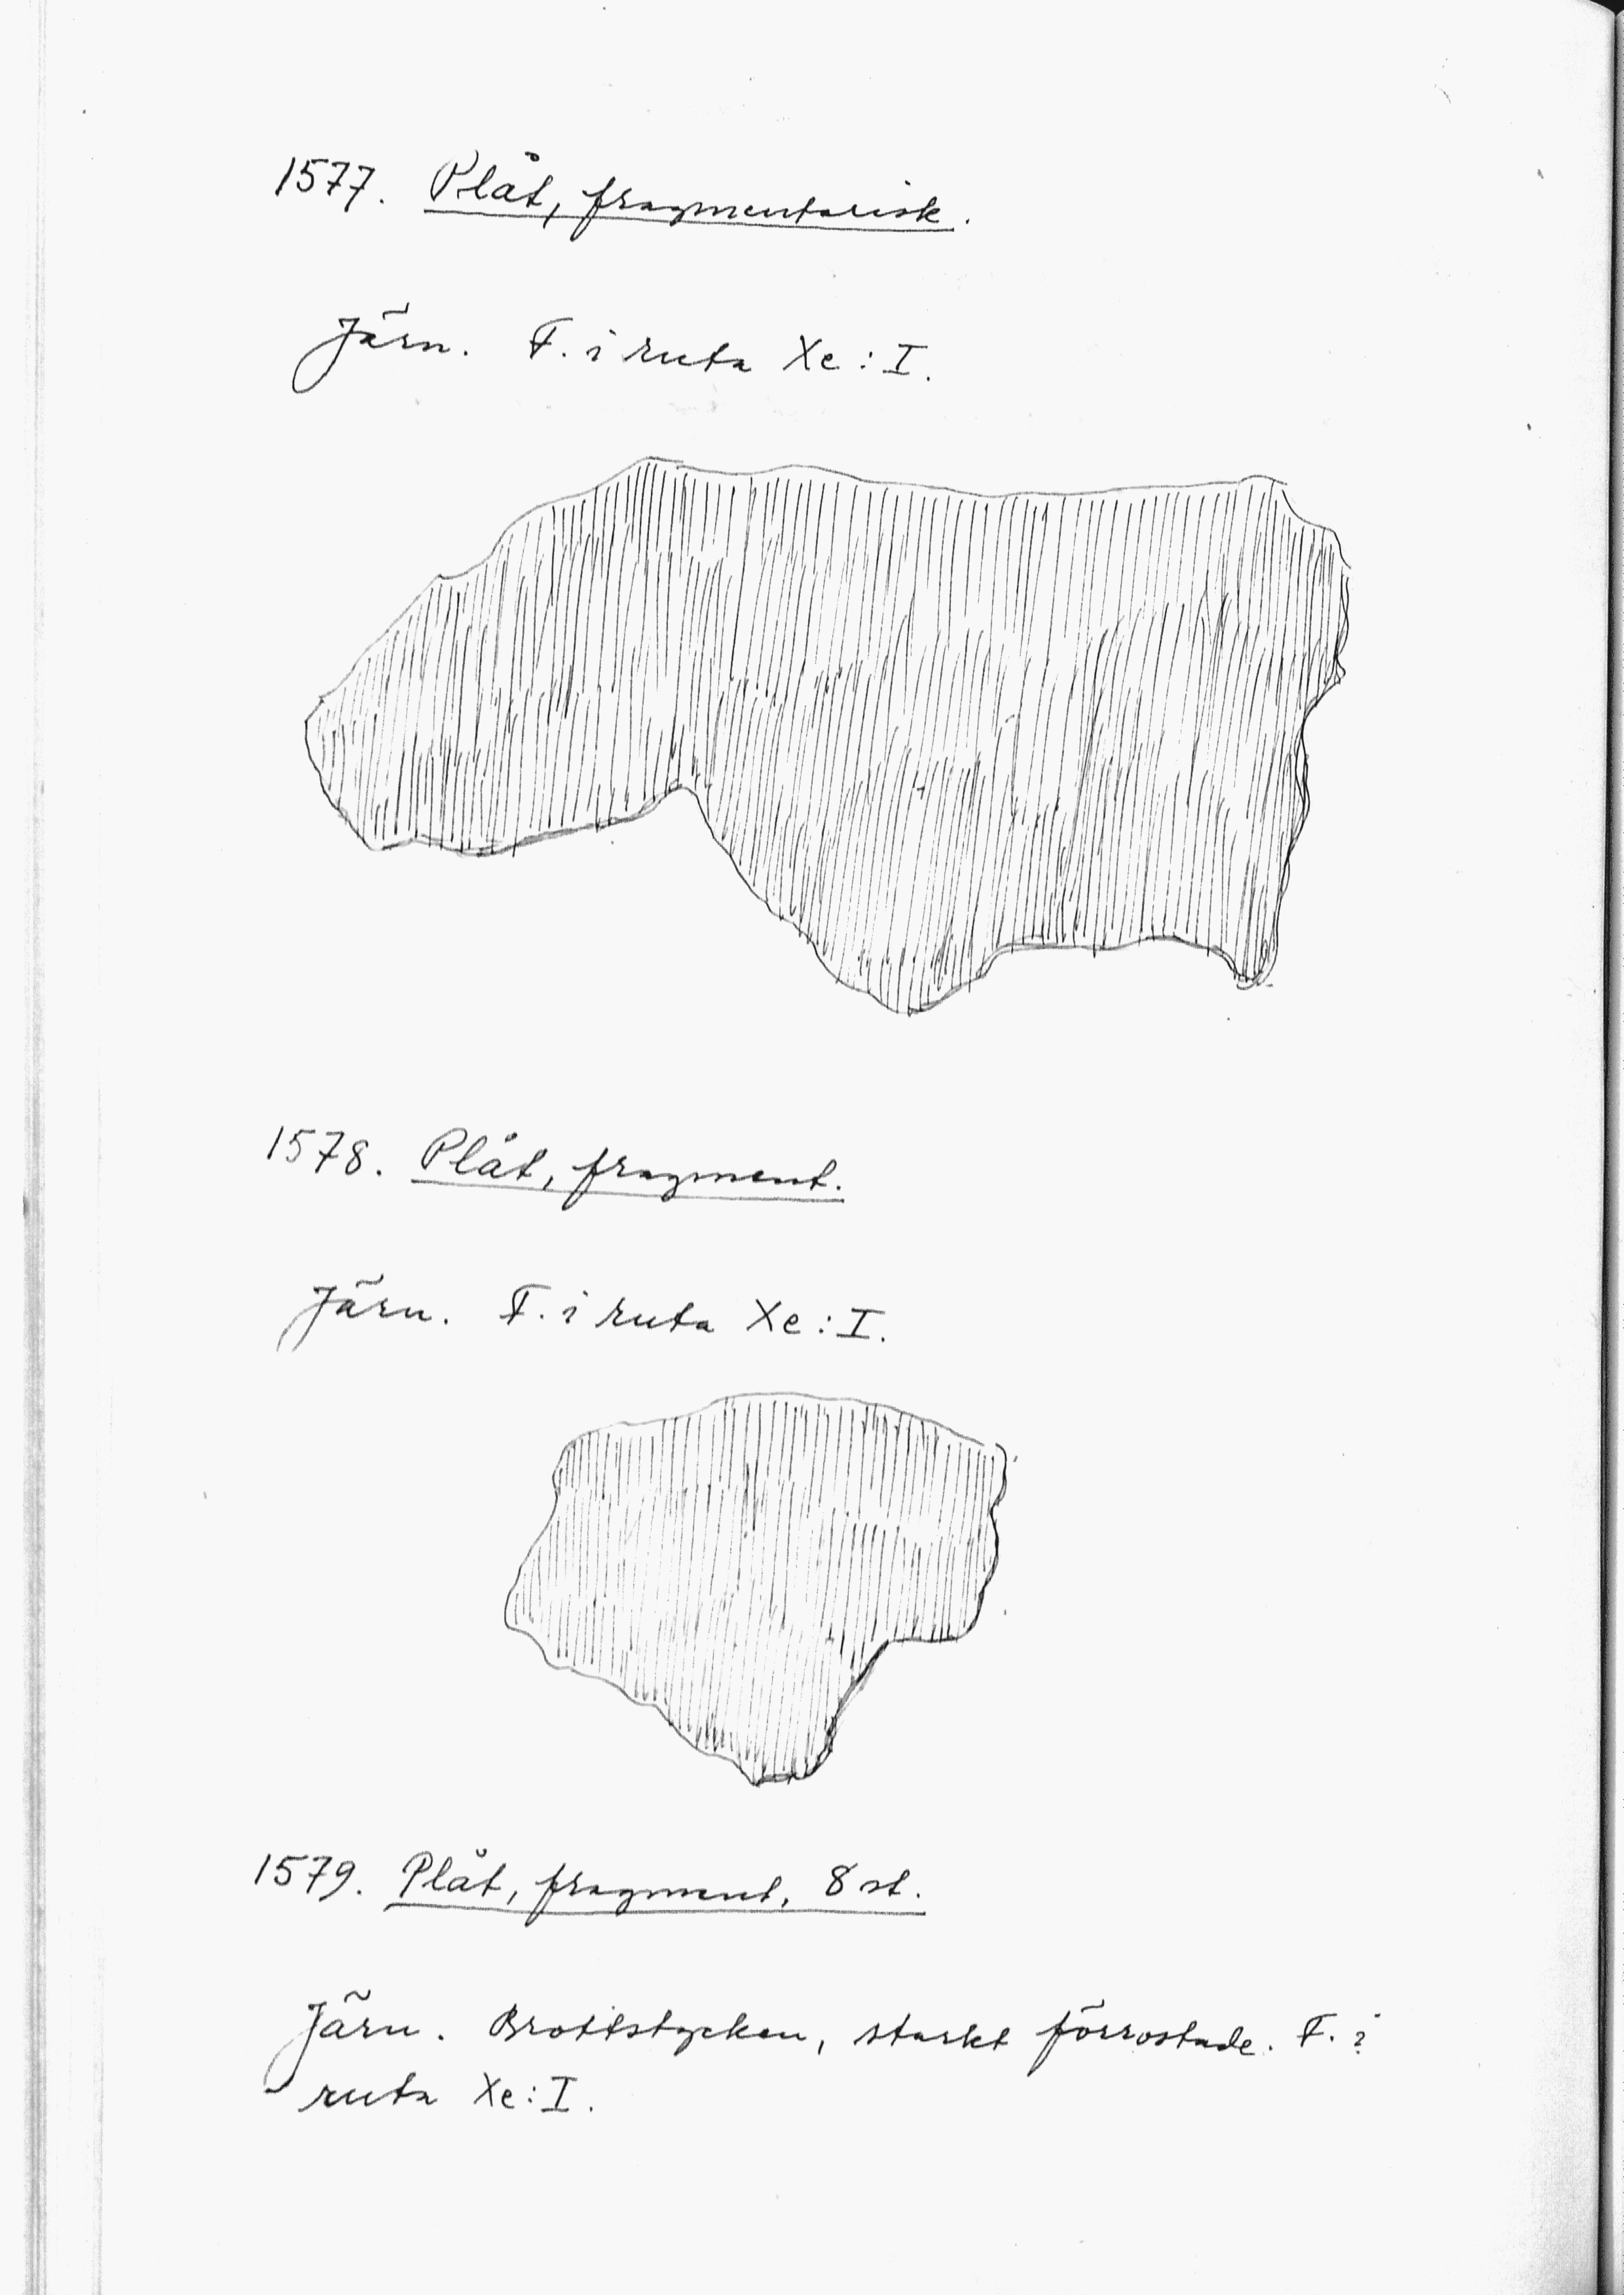 1577. Plåt, fragmentarisk.
Järn. F. i ruta Xe: I.
1578. Plåt, fragment.
Järn. F. i ruta Xe: I.
1579. Plåt, fragment, 8 st.
Järn. Brottstycken, starkt förrostade. F. i
ruta Xe: I.